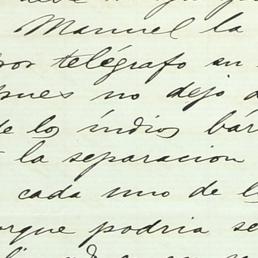 Manuel la
por telégrafo su
pues no dejo
de los índios bár
la separacion
cada uno de
orque podria se